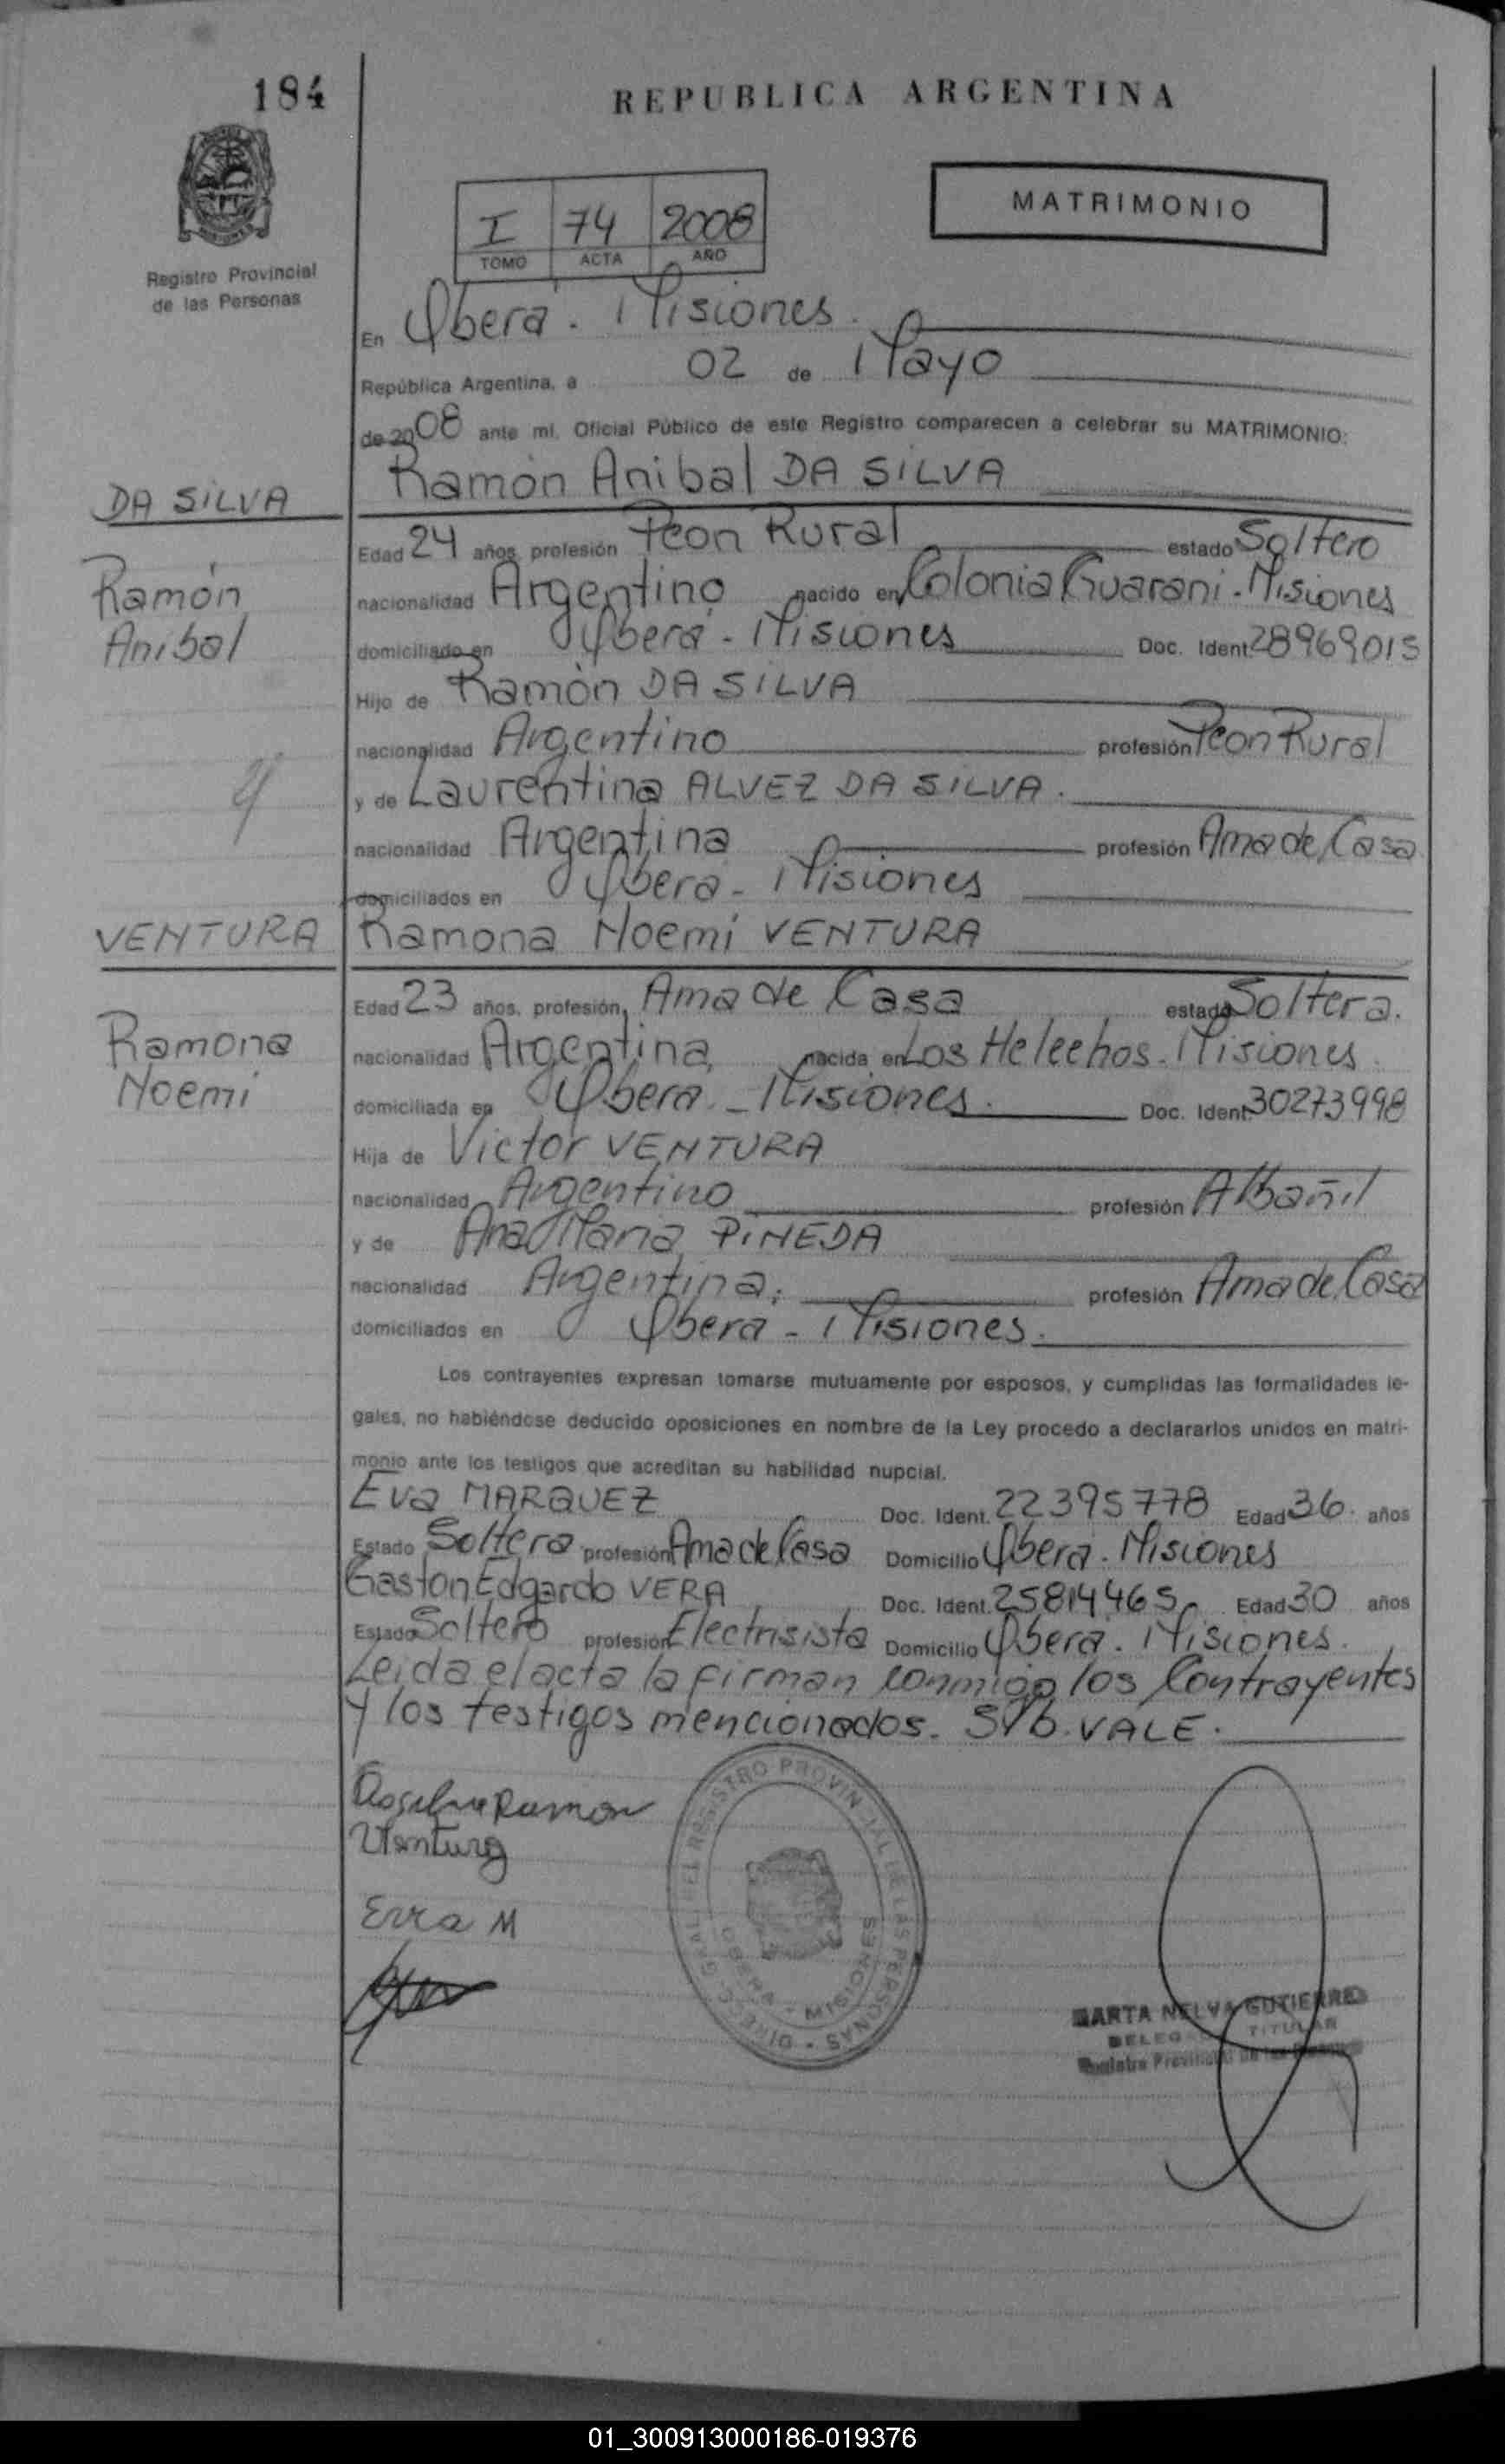 184
REPUBLICA ARGENTINA
MATRIMONIO
I 74 2008
TOMO ACTA AÑO
Registro Provincial
de las Personas
En Oberá. Misiones.
República Argentina, a 02 de Mayo
de 2008 ante mi, Oficial Público de este Registro comparecen a celebrar su MATRIMONIO:
DA SILVA
Ramón Anibal DA SILVA
Ramón
Anibal
Edad 24 años, profesión Peon Rural estado Soltero
nacionalidad Argentino nacido en Colonia Guarani - Misiones
domiciliado en Oberá - Misiones Doc. Ident. 28969015
Hijo de Ramón DA SILVA
nacionalidad Argentino profesión Peon Rural
y de Laurentina ALVEZ DA SILVA.
nacionalidad Argentina profesión Ama de Casa
domiciliados en Oberá - Misiones
VENTURA
Ramona Noemi VENTURA
Ramona
Noemi
Edad 23 años, profesión, Ama de Casa estado Soltera.
nacionalidad Argentina, nacida en Los Helechos - Misiones.
domiciliada en Oberá - Misiones. Doc. Ident. 30273998
Hija de Victor VENTURA
nacionalidad Argentino profesión Albañil
y de Ana Maria PINEDA
nacionalidad Argentina; profesión Ama de Casa
domiciliados en Oberá - Misiones.
Los contrayentes expresan tomarse mutuamente por esposos, y cumplidas las formalidades le-
gales, no habiéndose deducido oposiciones en nombre de la Ley procedo a declararlos unidos en matri-
monio ante los testigos que acreditan su habilidad nupcial.
Eva MARQUEZ Doc. Ident. 22395778 Edad 36. años
Estado Soltera profesión Ama de Casa Domicilio Oberá. Misiones
Gaston Edgardo VERA Doc. Ident. 25814465 Edad 30 años
Estado Soltero profesión Electrisista Domicilio Oberá. Misiones.
Leida el acta la firman conmigo los Contrayentes
y los testigos mencionados. S/b. VALE.
Ramon
Ventura
DIREC. GRAL. DEL REGISTRO PROVINCIAL DE LAS PERSONAS
OBERA - MISIONES
MARTA NELVA GUTIERREZ
TITULAR
01_300913000186-019376